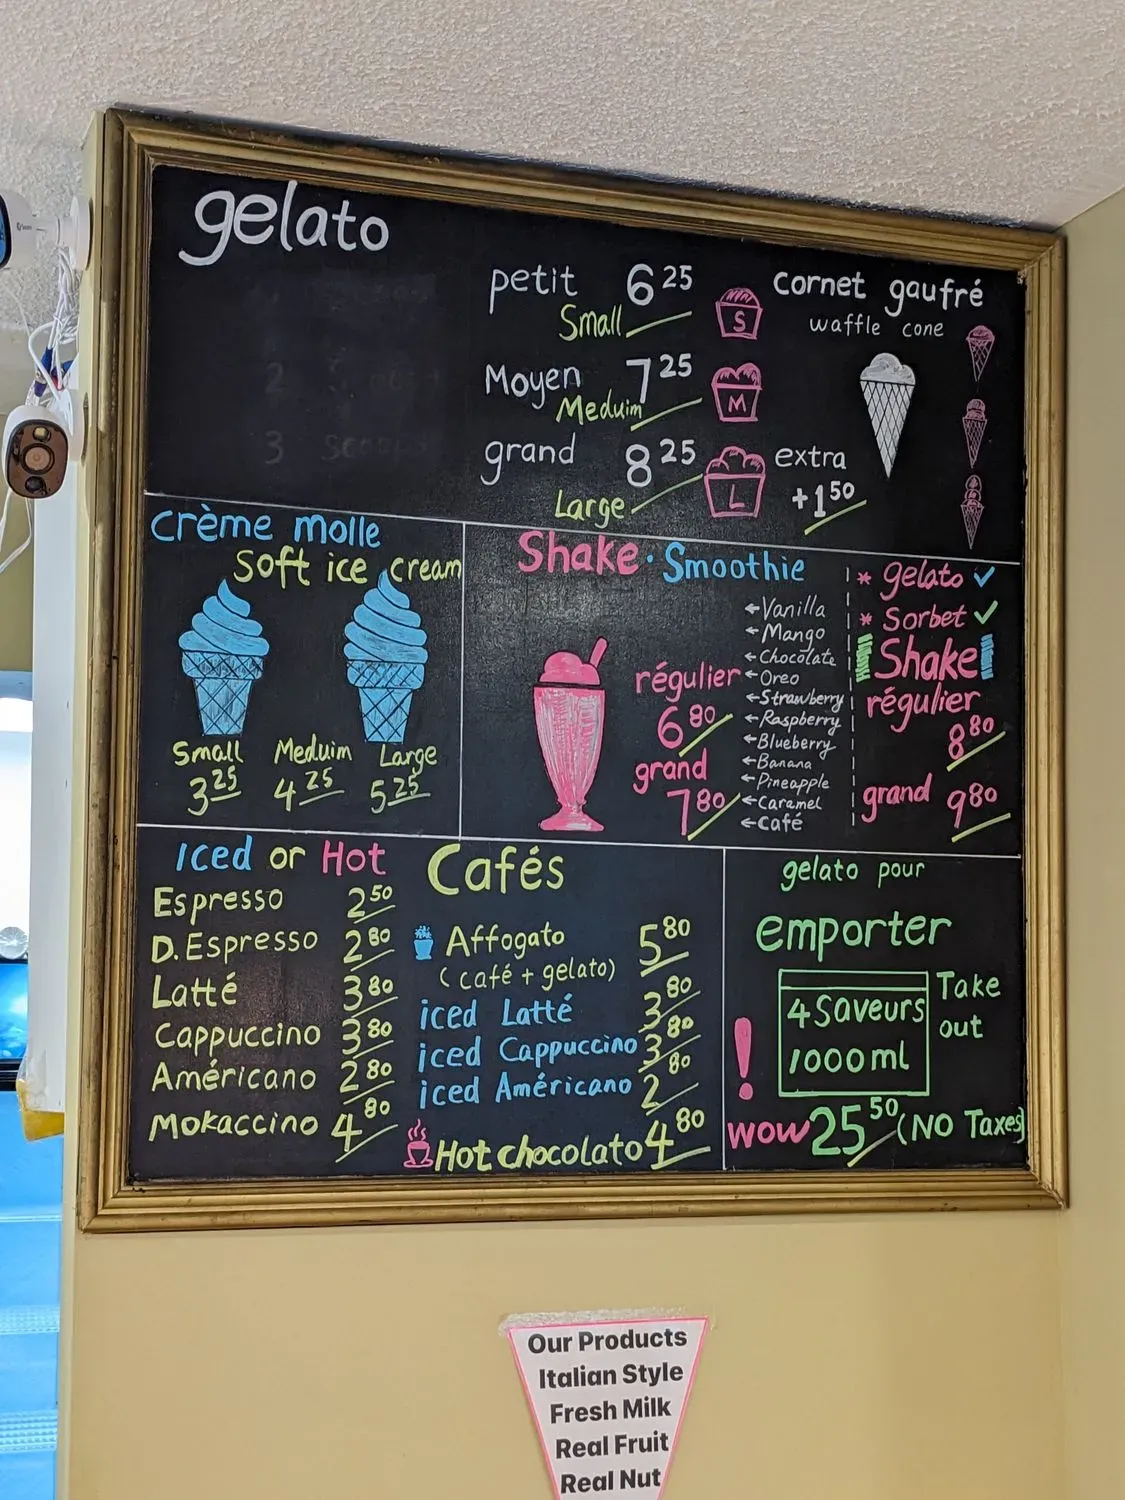 gelato
petit 6 25
Small
S
Moyen 7 25
Meduim
M
grand 8 25
Large
L
cornet gaufré
waffle cone
extra
+1 50
3 scoops
crème molle
Soft ice cream
Small Meduim Large
3 25 4 25 5 25
Shake · Smoothie
régulier
6 80
grand
7 80
←Vanilla
←Mango
←Chocolate
←Oreo
←Strawberry
←Raspberry
←Blueberry
←Banana
←Pineapple
←Caramel
←Café
* gelato ✓
* Sorbet ✓
Shake
régulier
8 80
grand 9 80
Iced or Hot
Espresso 2 50
D. Espresso 2 80
Latté 3 80
Cappuccino 3 80
Américano 2 80
Mokaccino 4 80
Cafés
Affogato 5 80
(café + gelato)
iced Latté 3 80
iced Cappuccino 3 80
iced Américano 2 80
Hot chocolato 4 80
gelato pour
emporter
Take
out
4 Saveurs
1000 ml
! WOW 25 50 (NO Taxes)
Our Products
Italian Style
Fresh Milk
Real Fruit
Real Nut